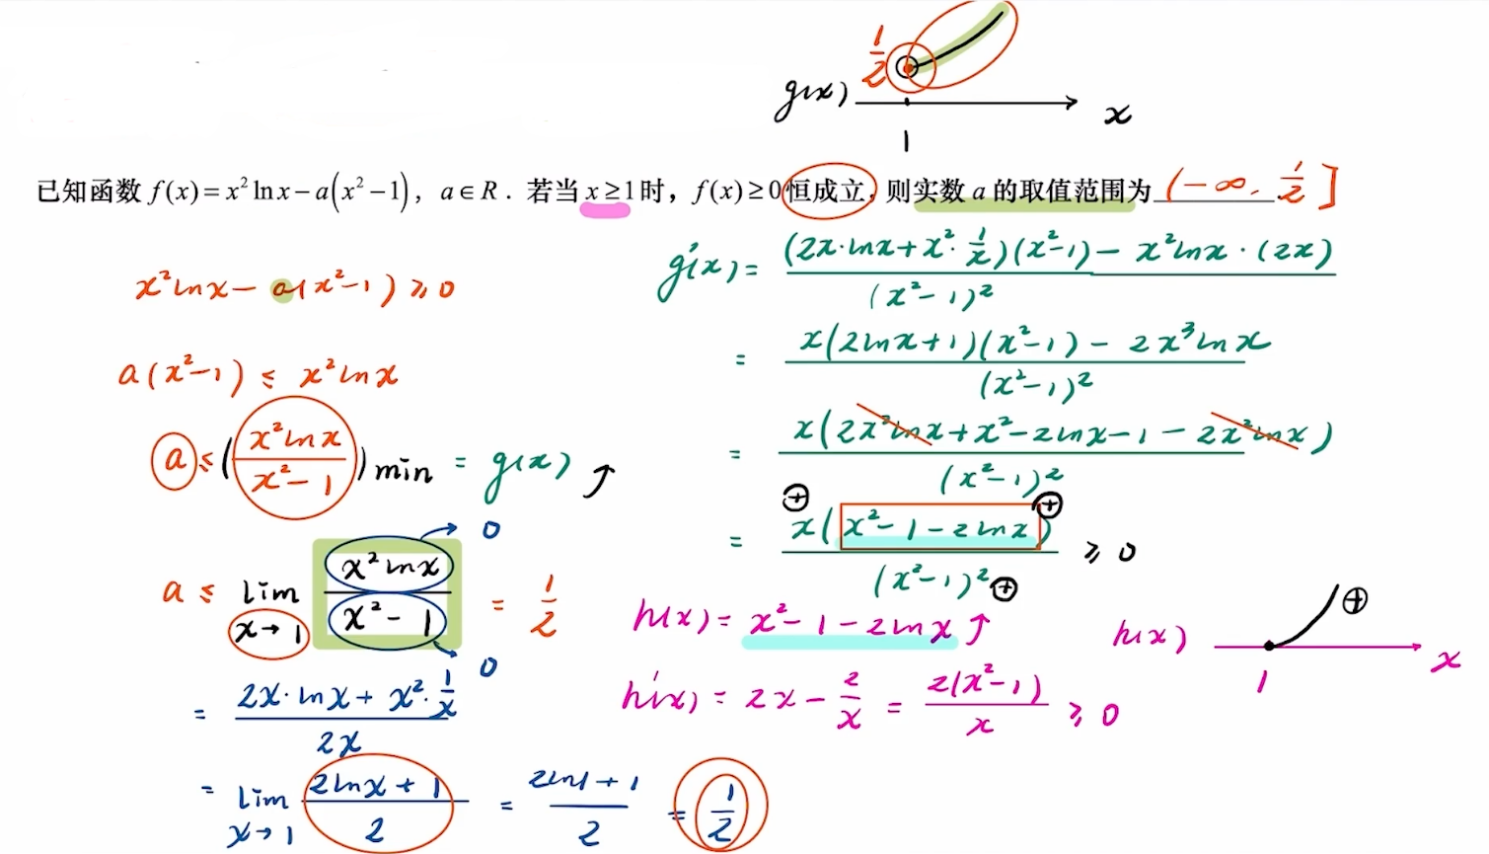 1/2
g(x)
x
1
已知函数 f(x)=x² ln x − a(x² −1)，a∈R．若当 x≥1时，f(x)≥0恒成立，则实数 a 的取值范围为 (−∞, 1/2]
x²lnx − a(x²−1) ≥ 0
a(x²−1) ≤ x²lnx
a ≤ (x²lnx / x²−1) min = g(x) ↑
a ≤ lim x→1 x²lnx / x²−1 = 1/2
0
0
= 2x·lnx + x²·1/x / 2x
= lim x→1 2lnx + 1 / 2 = 2ln1 + 1 / 2 = 1/2
g'(x) = (2x·lnx + x²·1/x)(x²−1) − x²lnx·(2x) / (x²−1)²
= x(2lnx+1)(x²−1) − 2x³lnx / (x²−1)²
= x(2x²lnx + x² − 2lnx − 1 − 2x²lnx) / (x²−1)²
= x(x²−1−2lnx) / (x²−1)² ≥ 0
⊕ ⊕ ⊕
h(x) = x²−1−2lnx ↑
h'(x) = 2x − 2/x = 2(x²−1) / x ≥ 0
h(x)
⊕
x
1